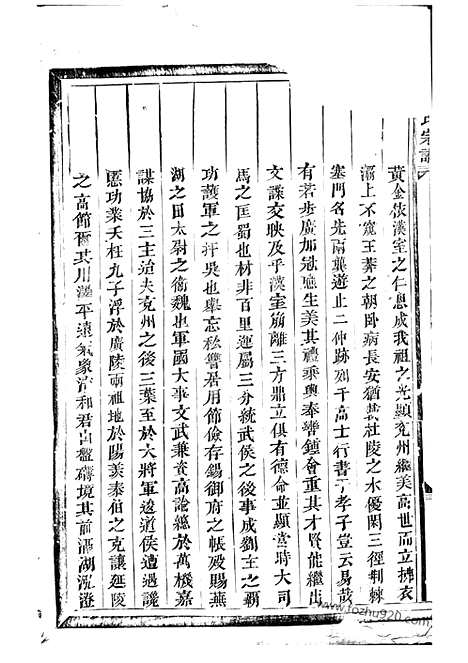 氏宗譜
黃金依漢室之仁恩成我祖之光顯兗州繼美高世而立拂衣
灞上不窺王莽之朝卧病長安猶栽杜陵之水優閑三徑荆棘
塞門名先兩龔遊止二仲跡列千高士行書于孝子豈云易哉
有若步廣加冠感生美其禮乘輿奉轡鍾會重其才賢能繼出
文諜交映及乎漢室崩離三方鼎立俱有德命並顯當時大司
馬之匡蜀也材非百里迤屬三分統武侯之後事成劉主之霸
功護軍之扞吳也舉忘私讐居用節儉存錫御府之帳歿賜蕪
湖之田太尉之衛魏也軍國大事文武兼資高論總於萬機嘉
謀協於三主洎夫兗州之後三葉至於大將軍逡遒侯遭遇譏
慝功業夭枉九子浮於廣陵兩祖地於陽羨泰伯之克讓延陵
之高節爾其川澤平遠氣象淸和君山盤礴境其前滆湖泓澄
www.tozhu920.com